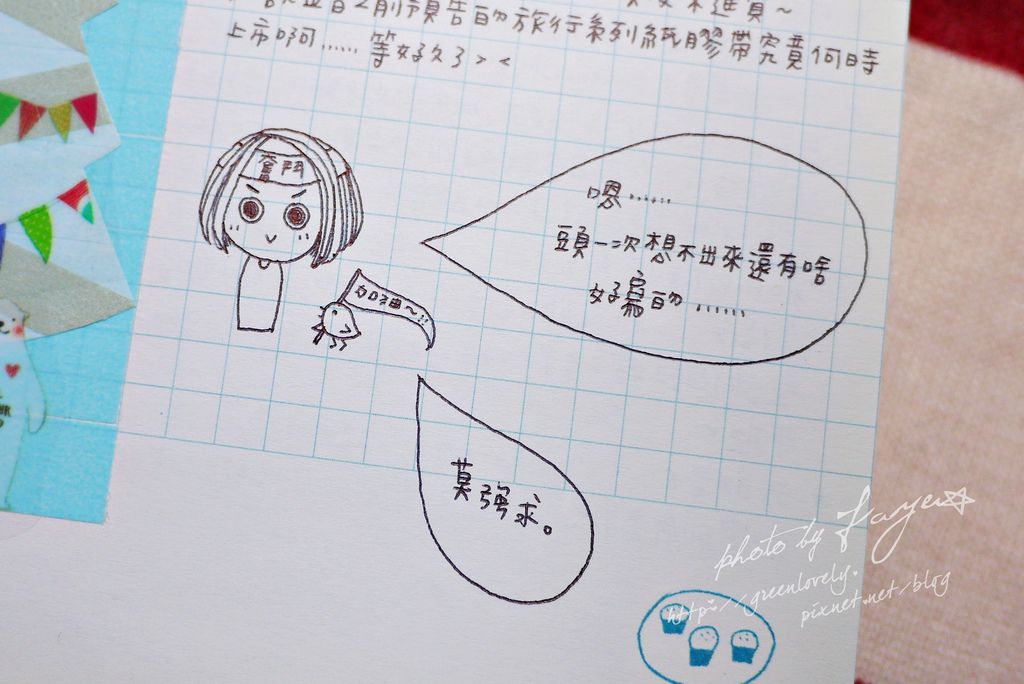 之前預告的旅行系列紙膠帶究竟何時
上市啊......等好久了><
奮鬥
嗯......
頭一次想不出來還有啥
好寫的......
加油~!!
莫強求。
photo by Fanyen☆
http://greenlovely.
pixnet.net/blog